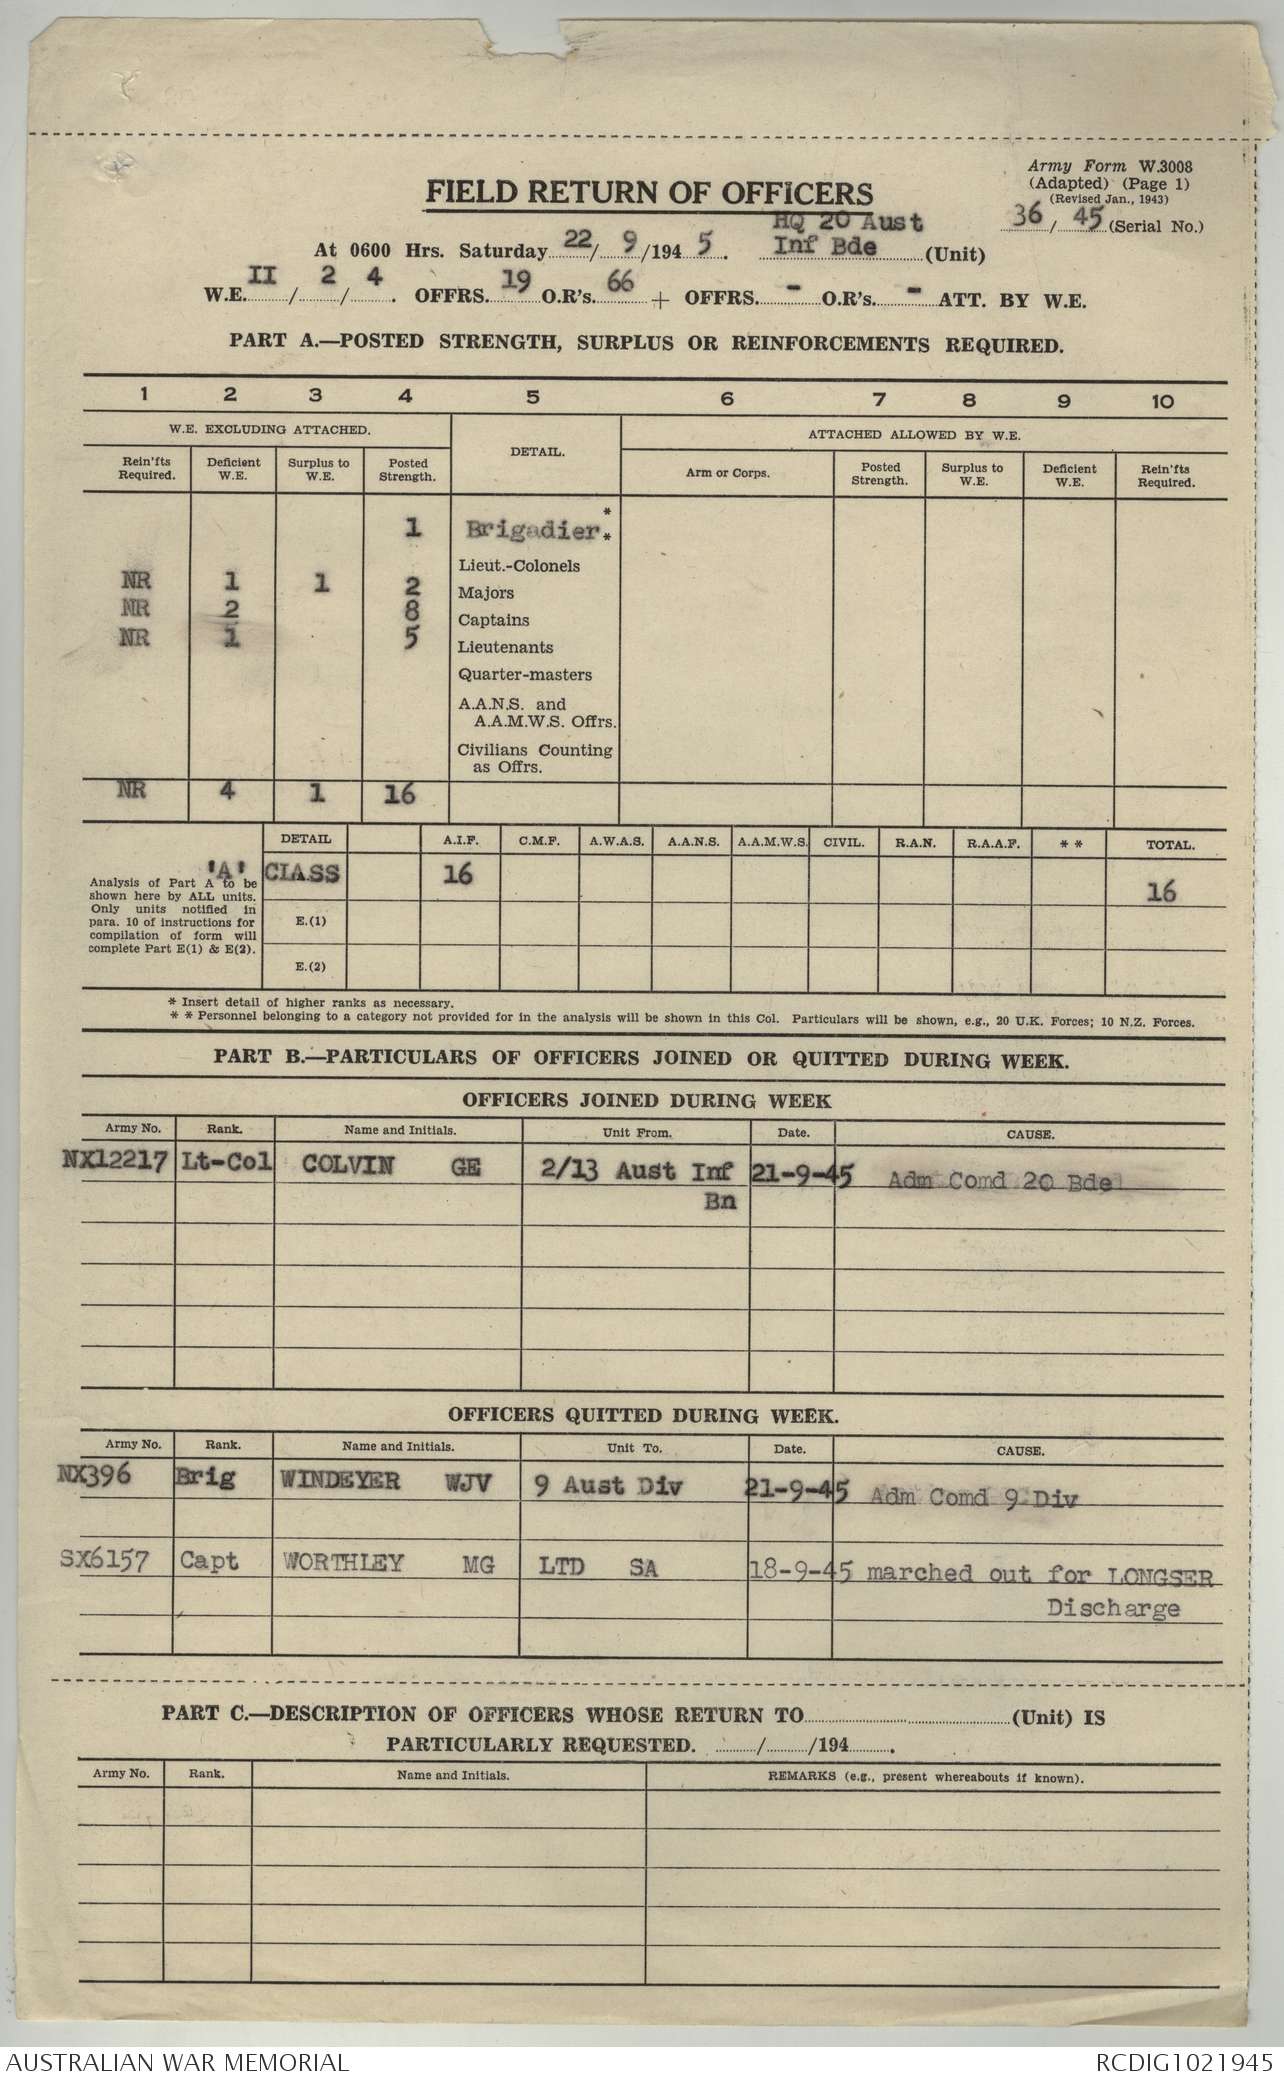 Army Form W.3008
(Adapted) (Page 1)
(Revised Jan., 1943)
FIELD RETURN OF OFFICERS
36 / 45 (Serial No.)
HQ 20 Aust
At 0600 Hrs. Saturday 22 / 9 /194 5 . Inf Bde (Unit)
W.E. II / 2 / 4 . OFFRS. 19 O.R's. 66 + OFFRS. - O.R's. - ATT. BY W.E.
PART A.—POSTED STRENGTH, SURPLUS OR REINFORCEMENTS REQUIRED.
1 2 3 4 5 6 7 8 9 10
W.E. EXCLUDING ATTACHED. DETAIL. ATTACHED ALLOWED BY W.E.
Rein'fts Required. Deficient W.E. Surplus to W.E. Posted Strength. Arm or Corps. Posted Strength. Surplus to W.E. Deficient W.E. Rein'fts Required.
1 Brigadier * *
Lieut.-Colonels
NR 1 1 2 Majors
NR 2 8 Captains
NR 1 5 Lieutenants
Quarter-masters
A.A.N.S. and
A.A.M.W.S. Offrs.
Civilians Counting
as Offrs.
NR 4 1 16
DETAIL A.I.F. C.M.F. A.W.A.S. A.A.N.S. A.A.M.W.S. CIVIL. R.A.N. R.A.A.F. * * TOTAL.
'A' CLASS 16 16
Analysis of Part A to be
shown here by ALL units.
Only units notified in
para. 10 of instructions for
compilation of form will
complete Part E(1) & E(2).
E.(1)
E.(2)
* Insert detail of higher ranks as necessary.
* * Personnel belonging to a category not provided for in the analysis will be shown in this Col. Particulars will be shown, e.g., 20 U.K. Forces; 10 N.Z. Forces.
PART B.—PARTICULARS OF OFFICERS JOINED OR QUITTED DURING WEEK.
OFFICERS JOINED DURING WEEK
Army No. Rank. Name and Initials. Unit From. Date. CAUSE.
NX12217 Lt-Col COLVIN GE 2/13 Aust Inf 21-9-45 Adm Comd 20 Bde
Bn
OFFICERS QUITTED DURING WEEK.
Army No. Rank. Name and Initials. Unit To. Date. CAUSE.
NX396 Brig WINDEYER WJV 9 Aust Div 21-9-45 Adm Comd 9 Div
SX6157 Capt WORTHLEY MG LTD SA 18-9-45 marched out for LONGSER
Discharge
PART C.—DESCRIPTION OF OFFICERS WHOSE RETURN TO (Unit) IS
PARTICULARLY REQUESTED. / /194 .
Army No. Rank. Name and Initials. REMARKS (e.g., present whereabouts if known).
AUSTRALIAN WAR MEMORIAL RCDIG1021945